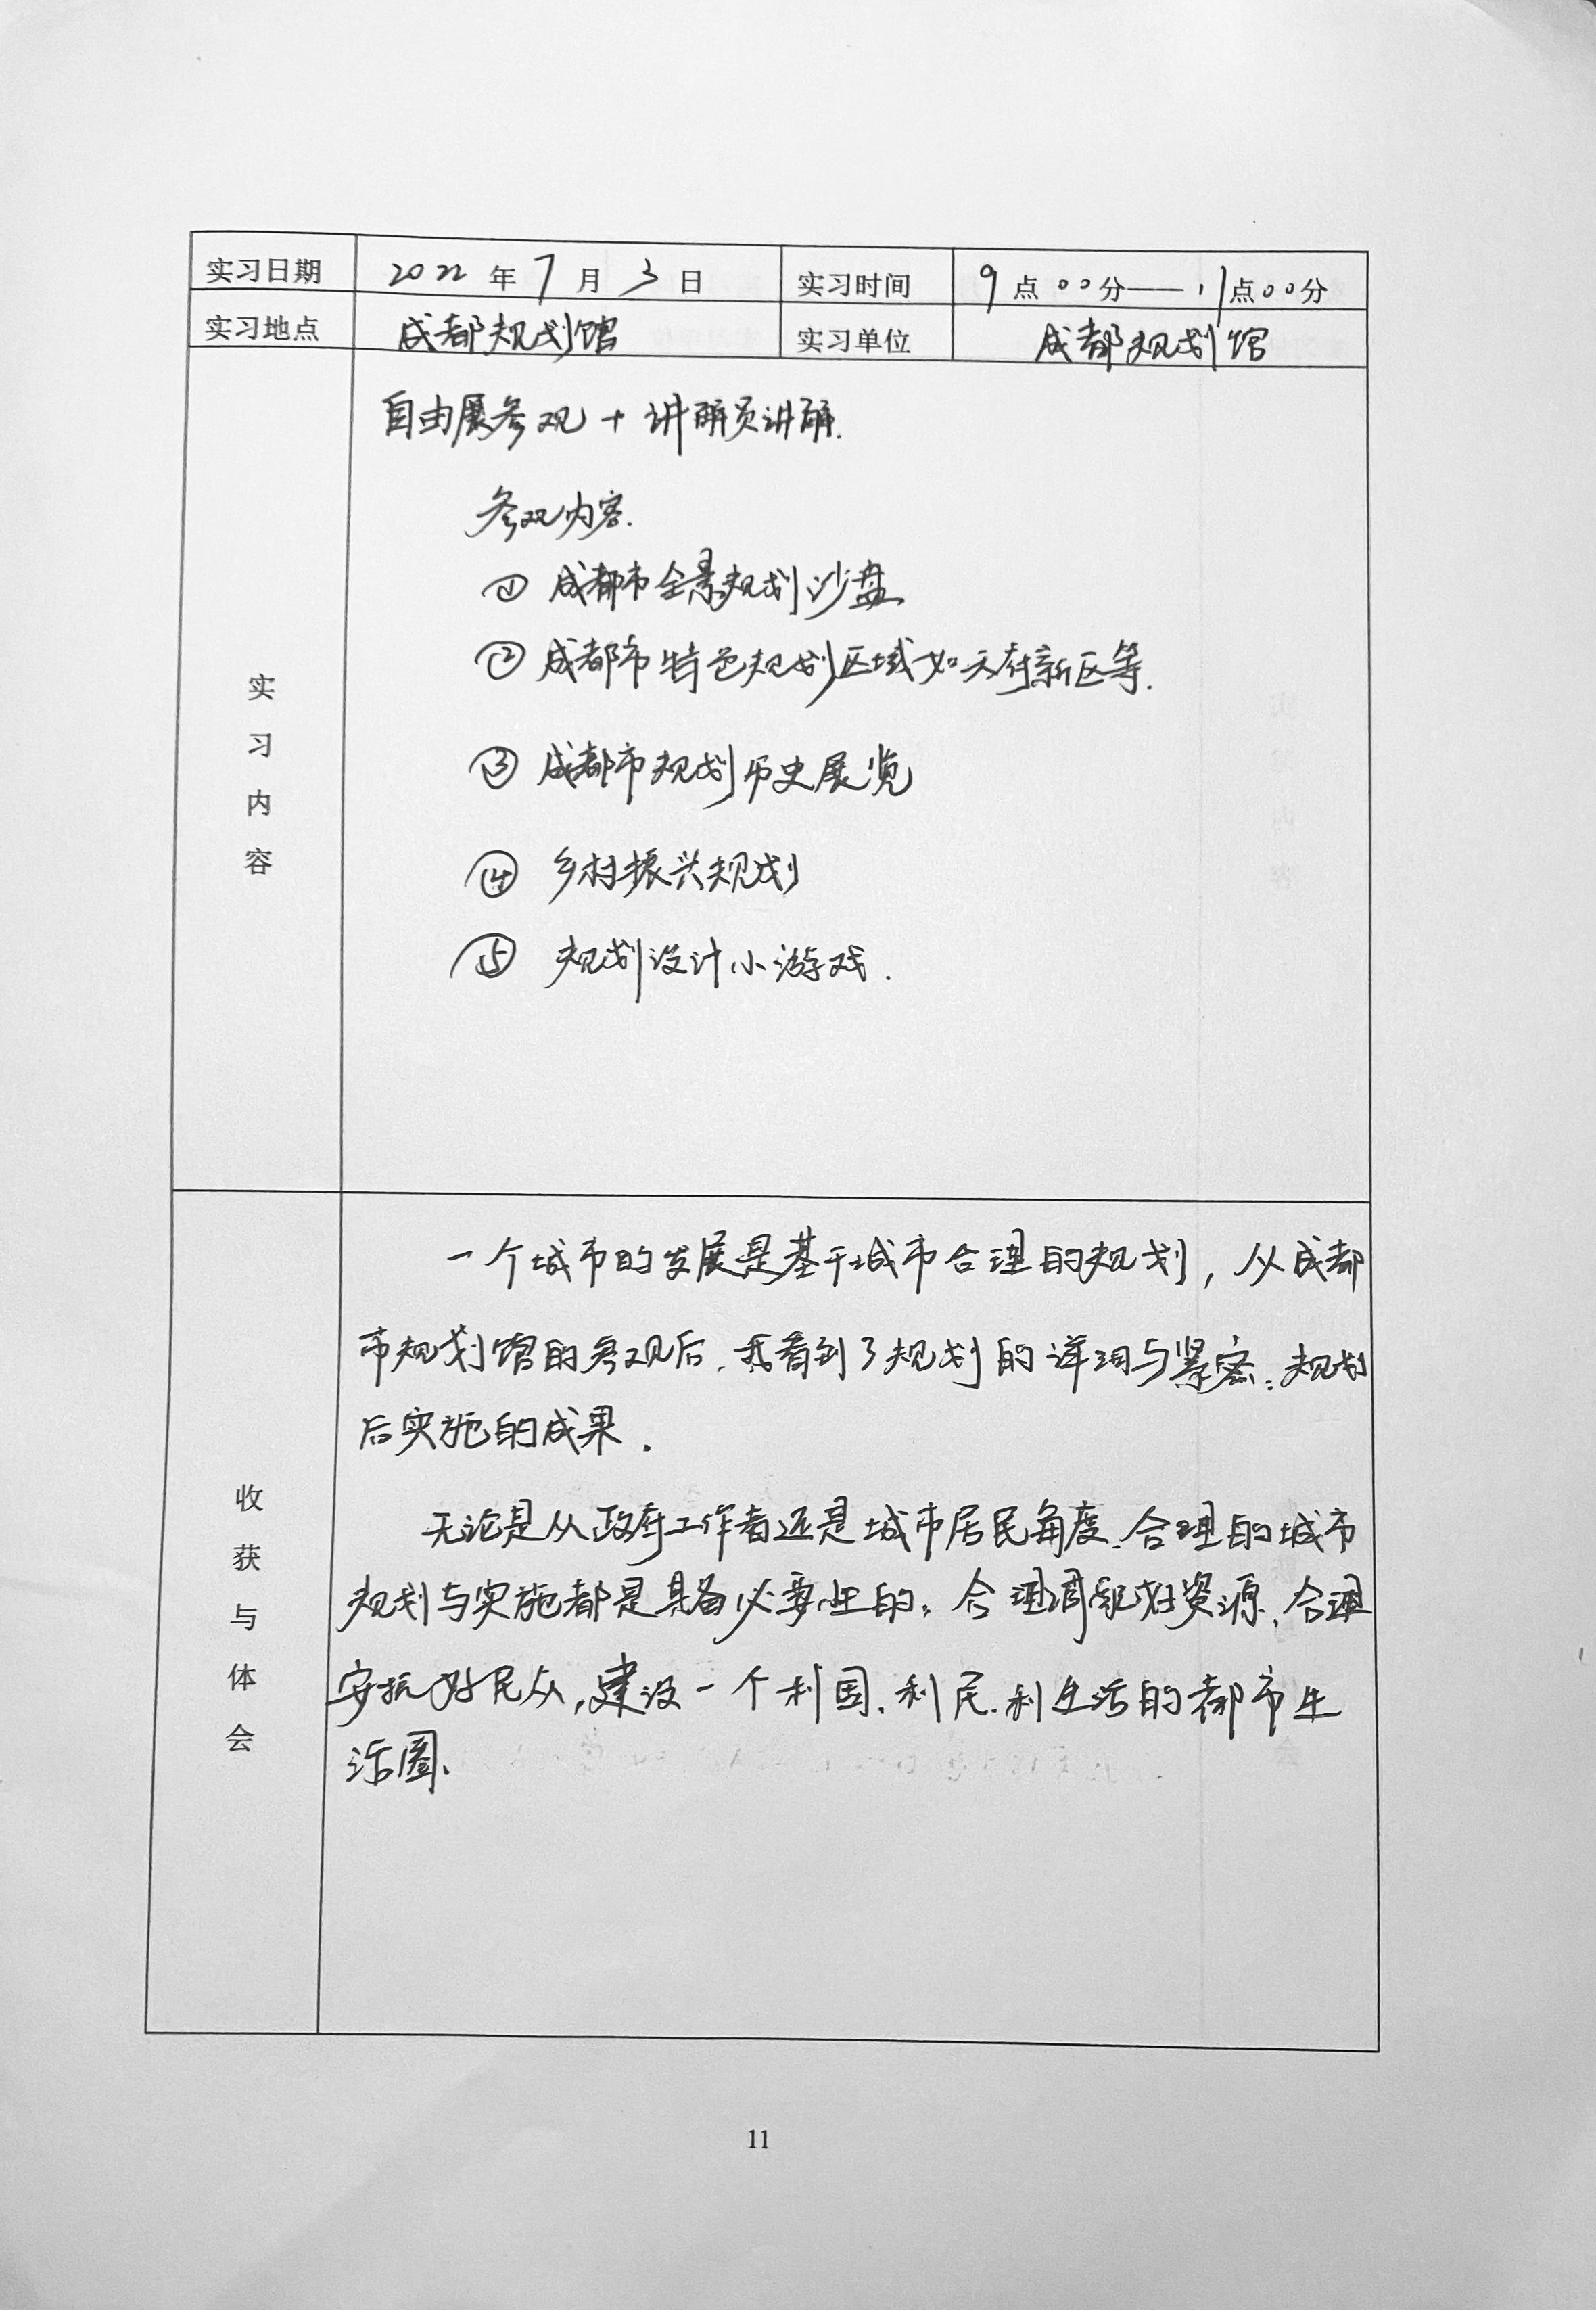 实习日期 2022年7月3日 实习时间 9点00分——11点00分
实习地点 成都规划馆 实习单位 成都规划馆
实习内容
自由展参观+讲解员讲解.
参观内容.
① 成都市全景规划沙盘
② 成都市特色规划区域如天府新区等.
③ 成都市规划历史展览
④ 乡村振兴规划
⑤ 规划设计小游戏.
收获与体会
一个城市的发展是基于城市合理的规划，从成都
市规划馆的参观后，我看到了规划的详细与紧密，规划
后实施的成果.
无论是从政府工作者还是城市居民角度，合理的城市
规划与实施都是具备必要性的。合理调配好资源，合理
安抚好民众，建设一个利国、利民、利生活的都市生
活圈、
11